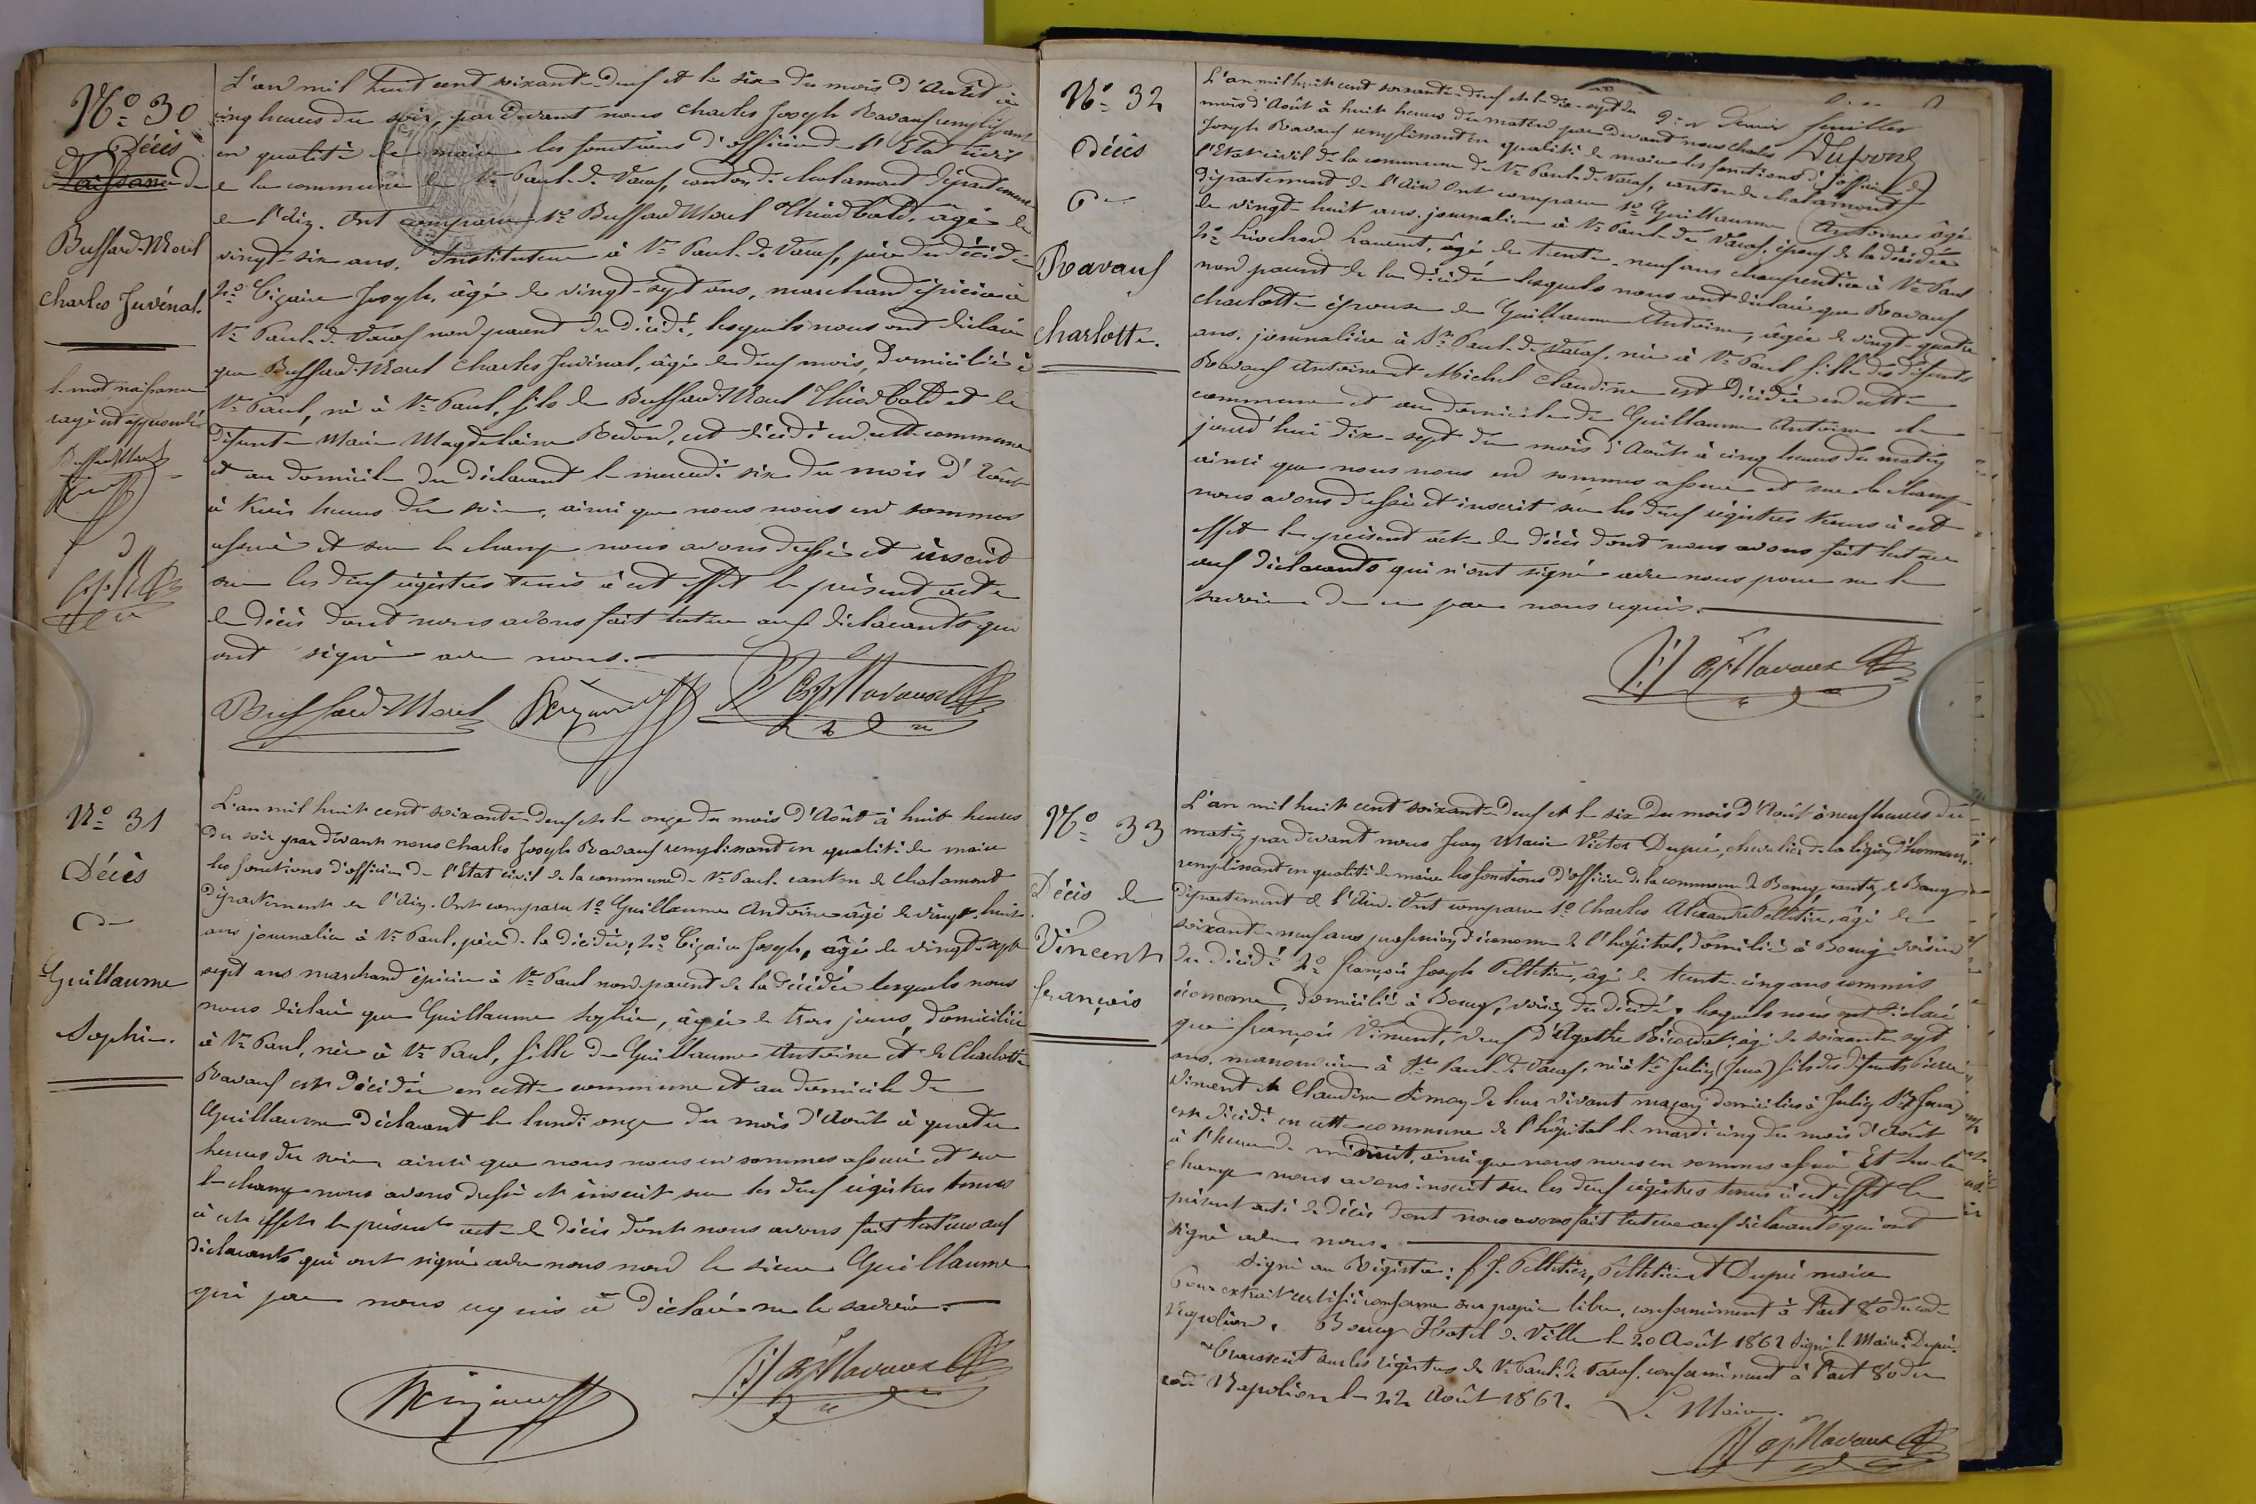 N° 30
Décès
Naissance de
Buffard-Morel
Charles Juvénal.
le mot naissance
rayé est approuvé
L'an mil huit cent soixante-deux et le six du mois d'Août à
cinq heures du soir, par devant nous Charles Joseph Ravaux remplissant
en qualité de maire les fonctions d'officier de l'Etat civil
de la commune de St Paul-de-Varax, canton de Chalamont département
de l'Ain. Ont comparu 1° Buffard Morel Thiodbald, âgé de
vingt six ans, Instituteur à St Paul-de-Varax, père du décédé
2° Joseph, âgé de vingt-sept ans, marchand épicier à
St Paul-de-Varax non parent du décédé, lesquels nous ont déclaré
que Buffard-Morel Charles Juvénal, âgé de deux mois, domicilié à
St Paul, né à St Paul, fils de Buffard Morel Thiodbald et de
défunte Marie Magdelaine, est décédé en cette commune
et au domicile du déclarant le mercredi six du mois d'Août
à trois heures du soir, ainsi que nous nous en sommes
assuré et sur le champ nous avons dressé et inscrit
sur les deux régistres tenus à cet effet le présent acte
de décès dont nous avons fait lecture aux déclarants qui
ont signé avec nous.
Buffard-Morel
N° 31
Décès
de
Guillaume
Sophie.
L'an mil huit cent soixante-deux et le onze du mois d'Août à huit heures
du soir par devant nous Charles Joseph Ravaux remplissant en qualité de maire
les fonctions d'officier de l'Etat civil de la commune de St Paul canton de Chalamont
département de l'Ain. Ont comparu 1° Guillaume Antoine âgé de vingt-huit
ans journalier à St Paul, père de la décédée, 2° Joseph, âgé de vingt-sept
sept ans marchand épicier à St Paul non parent de la décédée lesquels nous
nous déclaré que Guillaume Sophie, âgée de trois jours, domiciliée
à St Paul, née à St Paul, fille de Guillaume Antoine et de Charlotte
Ravaux est décédée en cette commune et au domicile de
Guillaume déclarant le lundi onze du mois d'Août à quatre
heures du soir ainsi que nous nous en sommes assuré et sur
le champ nous avons dressé et inscrit sur les deux régistres tenus
à cet effet le présent acte de décès dont nous avons fait lecture aux
déclarants qui ont signé avec nous non le sieur Guillaume
qui par nous requis a déclaré ne le savoir.
N° 32
Décès
de
Ravaux
Charlotte.
feuillet
L'an mil huit cent soixante-deux et le dix-sept du
mois d'Août à huit heures du matin par devant nous Charles
Joseph Ravaux remplissant en qualité de maire les fonctions d'officier de
l'Etat civil de la commune de St Paul-de-Varax, canton de Chalamont
département de l'Ain Ont comparu 1° Guillaume Antoine âgé
de vingt-huit ans, journalier à St Paul-de-Varax, époux de la décédée
2° Laurent, âgé de trente-neuf ans charpentier à St Paul
non parent de la décédée lesquels nous ont déclaré que Ravaux
Charlotte épouse de Guillaume Antoine, âgée de vingt-quatre
ans, journalière à St Paul-de-Varax, née à St Paul fille des défunts
Ravaux Antoine et Michel Claudine est décédée en cette
commune et au domicile de Guillaume Antoine
jourd'hui dix-sept du mois d'Août à cinq heures du matin
ainsi que nous nous en sommes assuré et sur le champ
nous avons dressé et inscrit sur les deux régistres tenus à cet
effet le présent acte de décès dont nous avons fait lecture
aux déclarants qui n'ont signé avec nous pour ne le
savoir de ce par nous requis.
N° 33
Décès de
Vincent
françois
L'an mil huit cent soixante-deux et le six du mois d'Août à neuf heures du
matin, par devant nous Jean Marie Victor Dupré, chevalier de la légion d'honneur,
remplissant en qualité de maire les fonctions d'officier de la commune de Bourg canton de Bourg
département de l'Ain. Ont comparu 1° Charles Alexandre Pelletier, âgé de
soixante-neuf ans profession d'économe de l'hôpital, domicilié à Bourg voisin
du décédé 2° françois Joseph Pelletier, âgé de trente-cinq ans commis
économe, domicilié à Bourg, voisin du décédé, lesquels nous ont déclaré
que françois Vincent, veuf d'Agathe, âgé de soixante sept
ans, manouvrier à St Paul-de-Varax, né à St Julien (Jura) fils des défunts Pierre
Vincent et Claudine de leur vivant maçon domiciliés à Julien St (Jura)
est décédé en cette commune de l'hôpital le mardi cinq du mois d'Août
à l'heure de minuit, ainsi que nous nous en sommes assuré Et sur-le
champ nous avons inscrit sur les deux régistres tenus à cet effet le
présent acte de décès dont nous avons fait lecture aux déclarants qui ont
signé avec nous.
Signé au Régistre: f. J. Pelletier, Pelletier et Dupré maire
Pour extrait certifié conforme sur papier libre, conformément à l'art 80 du code
Napoléon. Bourg Hotel de Ville le 20 Août 1862 Signé le Maire: Dupré.
Transcrit sur les régistres de St Paul-de-Varax conformément à l'art 80 du
code Napoléon le 22 Août 1862. Le Maire.